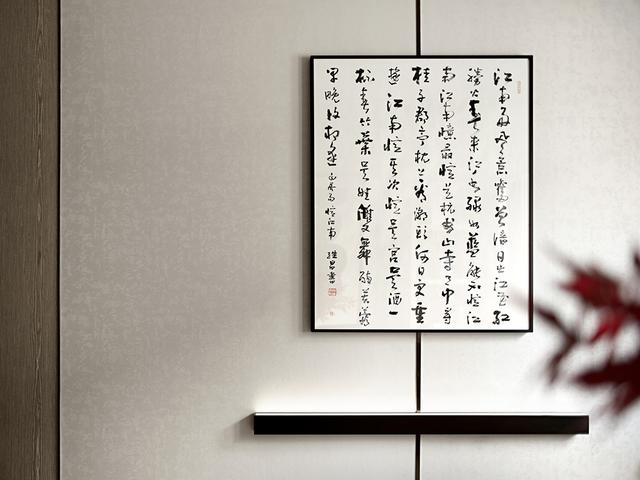 江南好风景舊曾谙日出江花红
勝火春来江水绿如蓝能不憶江
南江南憶最憶是杭州山寺月中尋
桂子郡亭枕上看潮頭何日更重
遊江南憶其次憶吴宫吴酒一
杯春竹葉吴娃雙舞醉芙蓉
早晚復相逢 白居易憶江南 继昌書